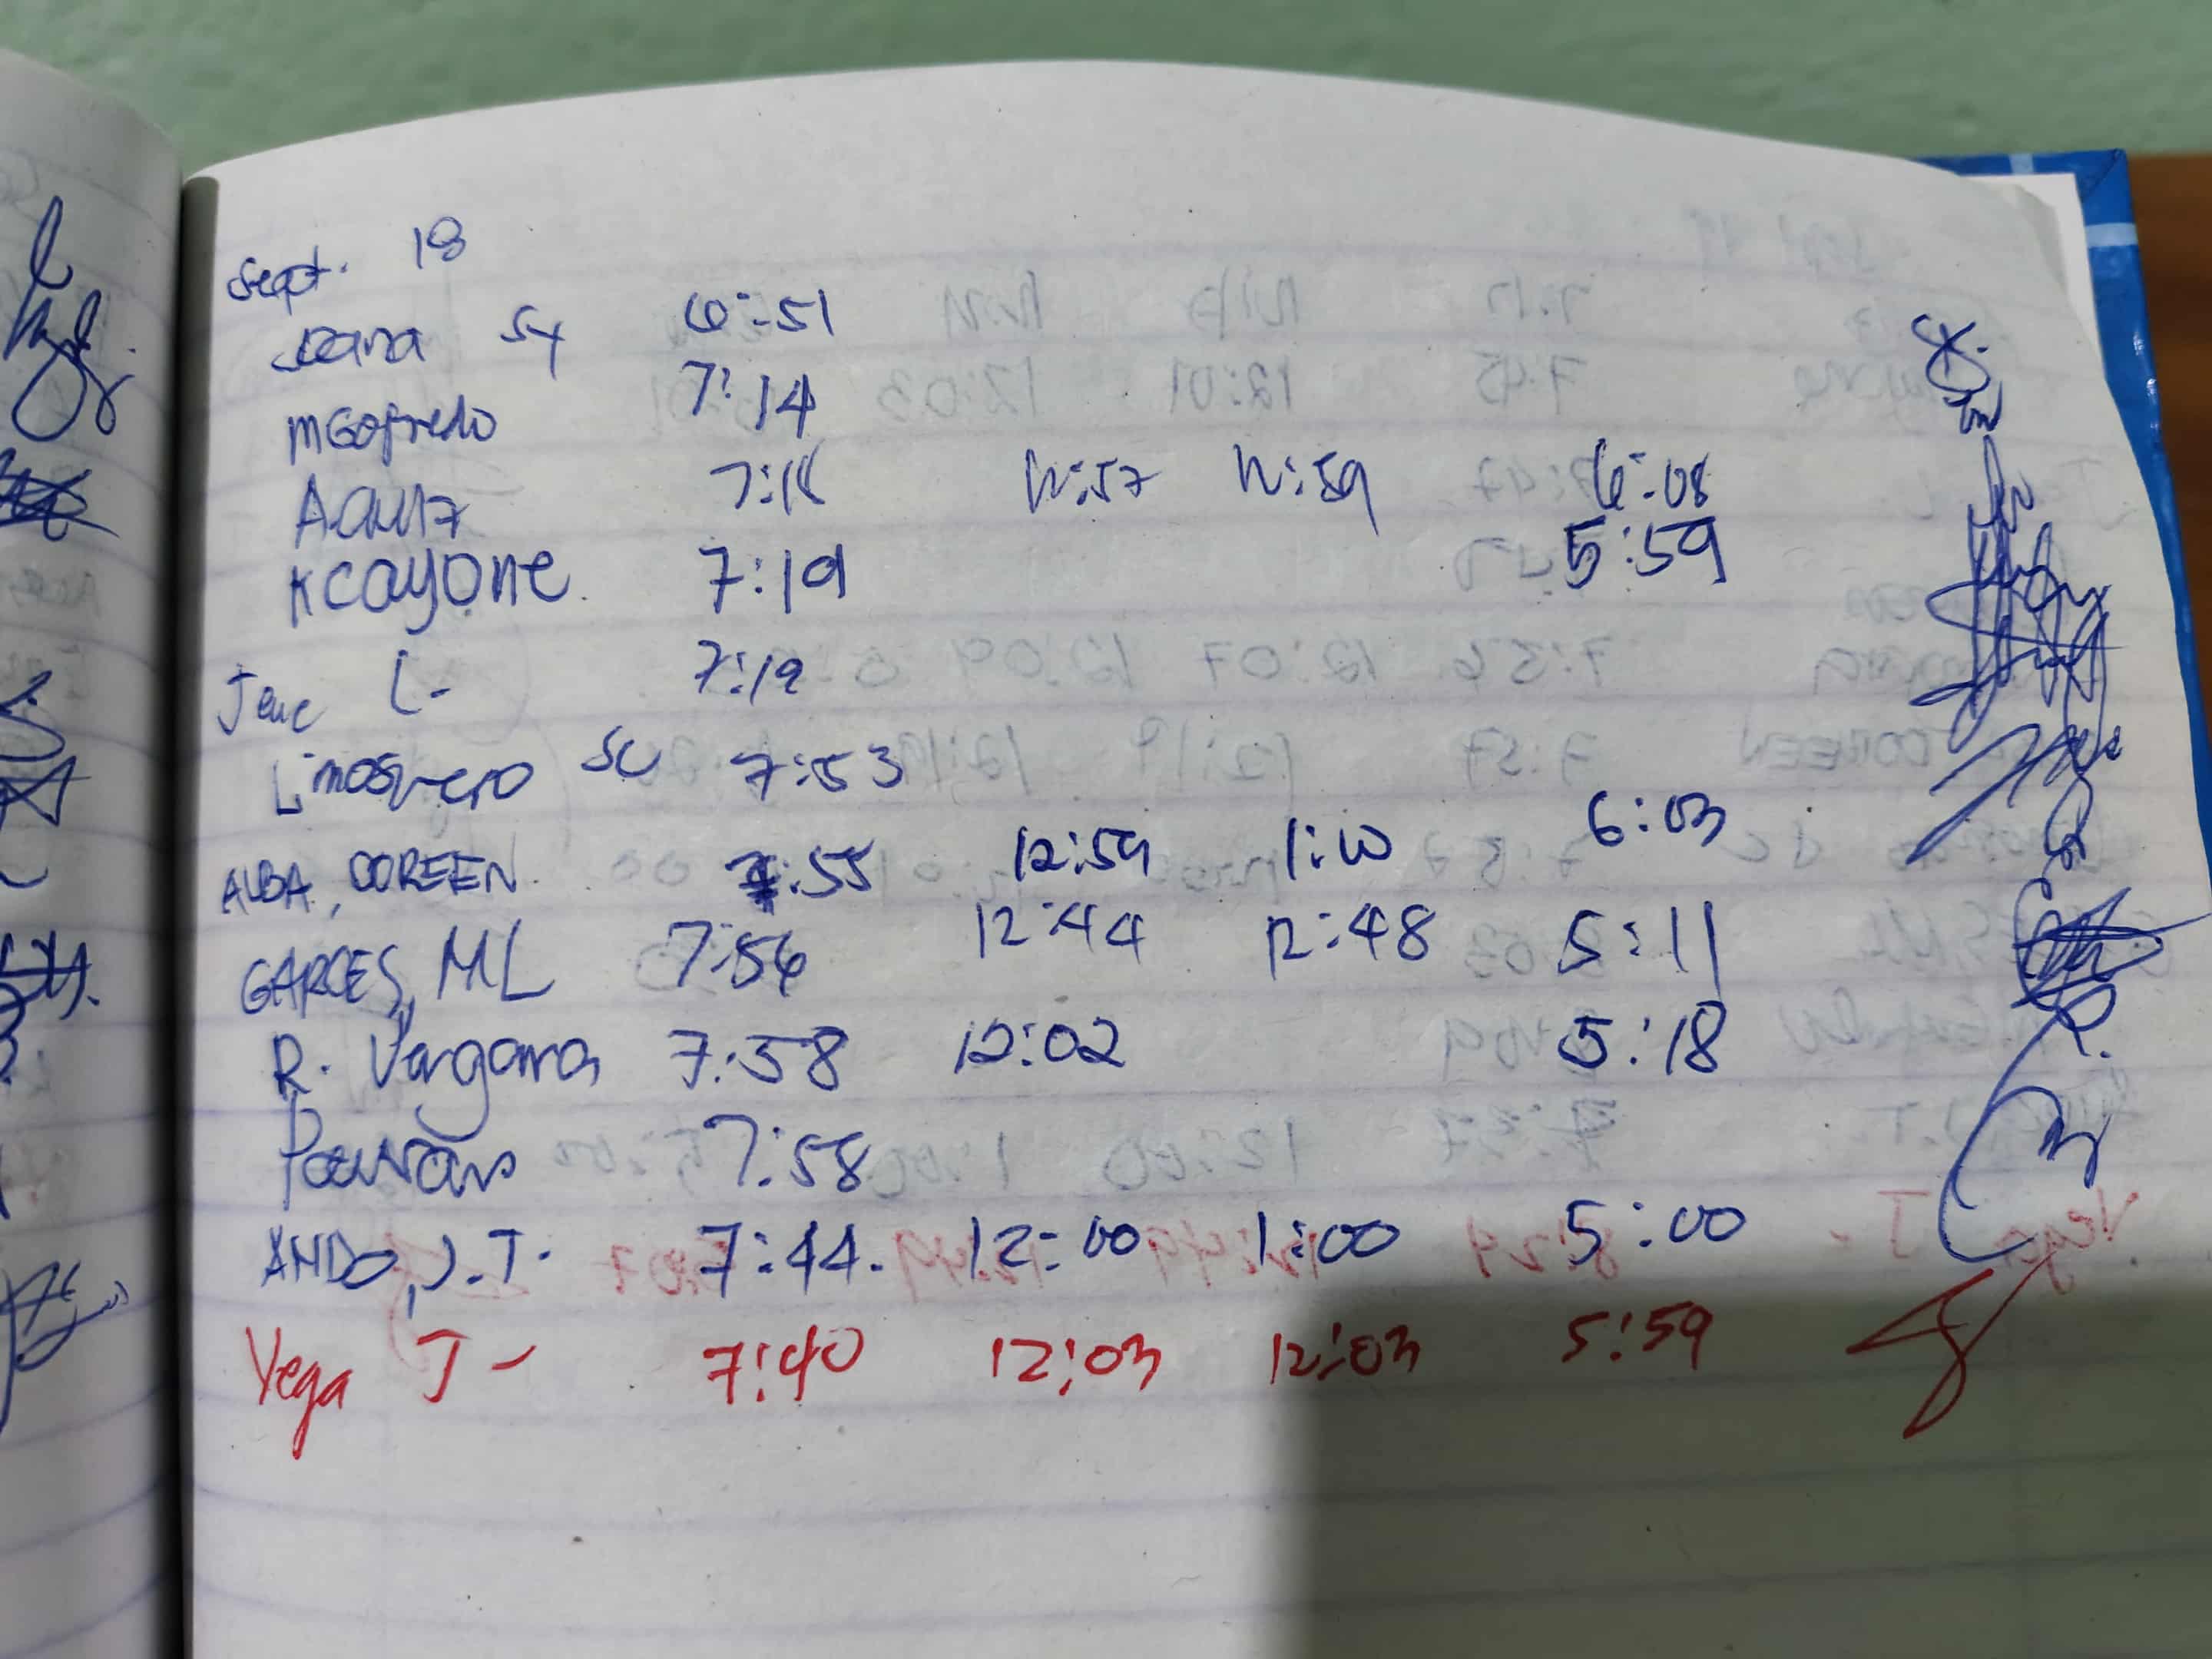 Sept. 18
Joana Sy 6:51
MGofredo 7:14
7:18 12:57 12:59 6:08
KCayone 7:19 5:59
Jene L- 7:19
Limosnero SC 7:53
ALBA, DOREEN 7:55 12:59 1:10 6:03
GARCES, ML 7:56 12:44 12:48 5:11
R. Vergara 7:58 12:02 5:18
7:58
ANDO, J.T. 7:44. 12:00 1:00 5:00
Vega J- 7:40 12:03 12:03 5:59